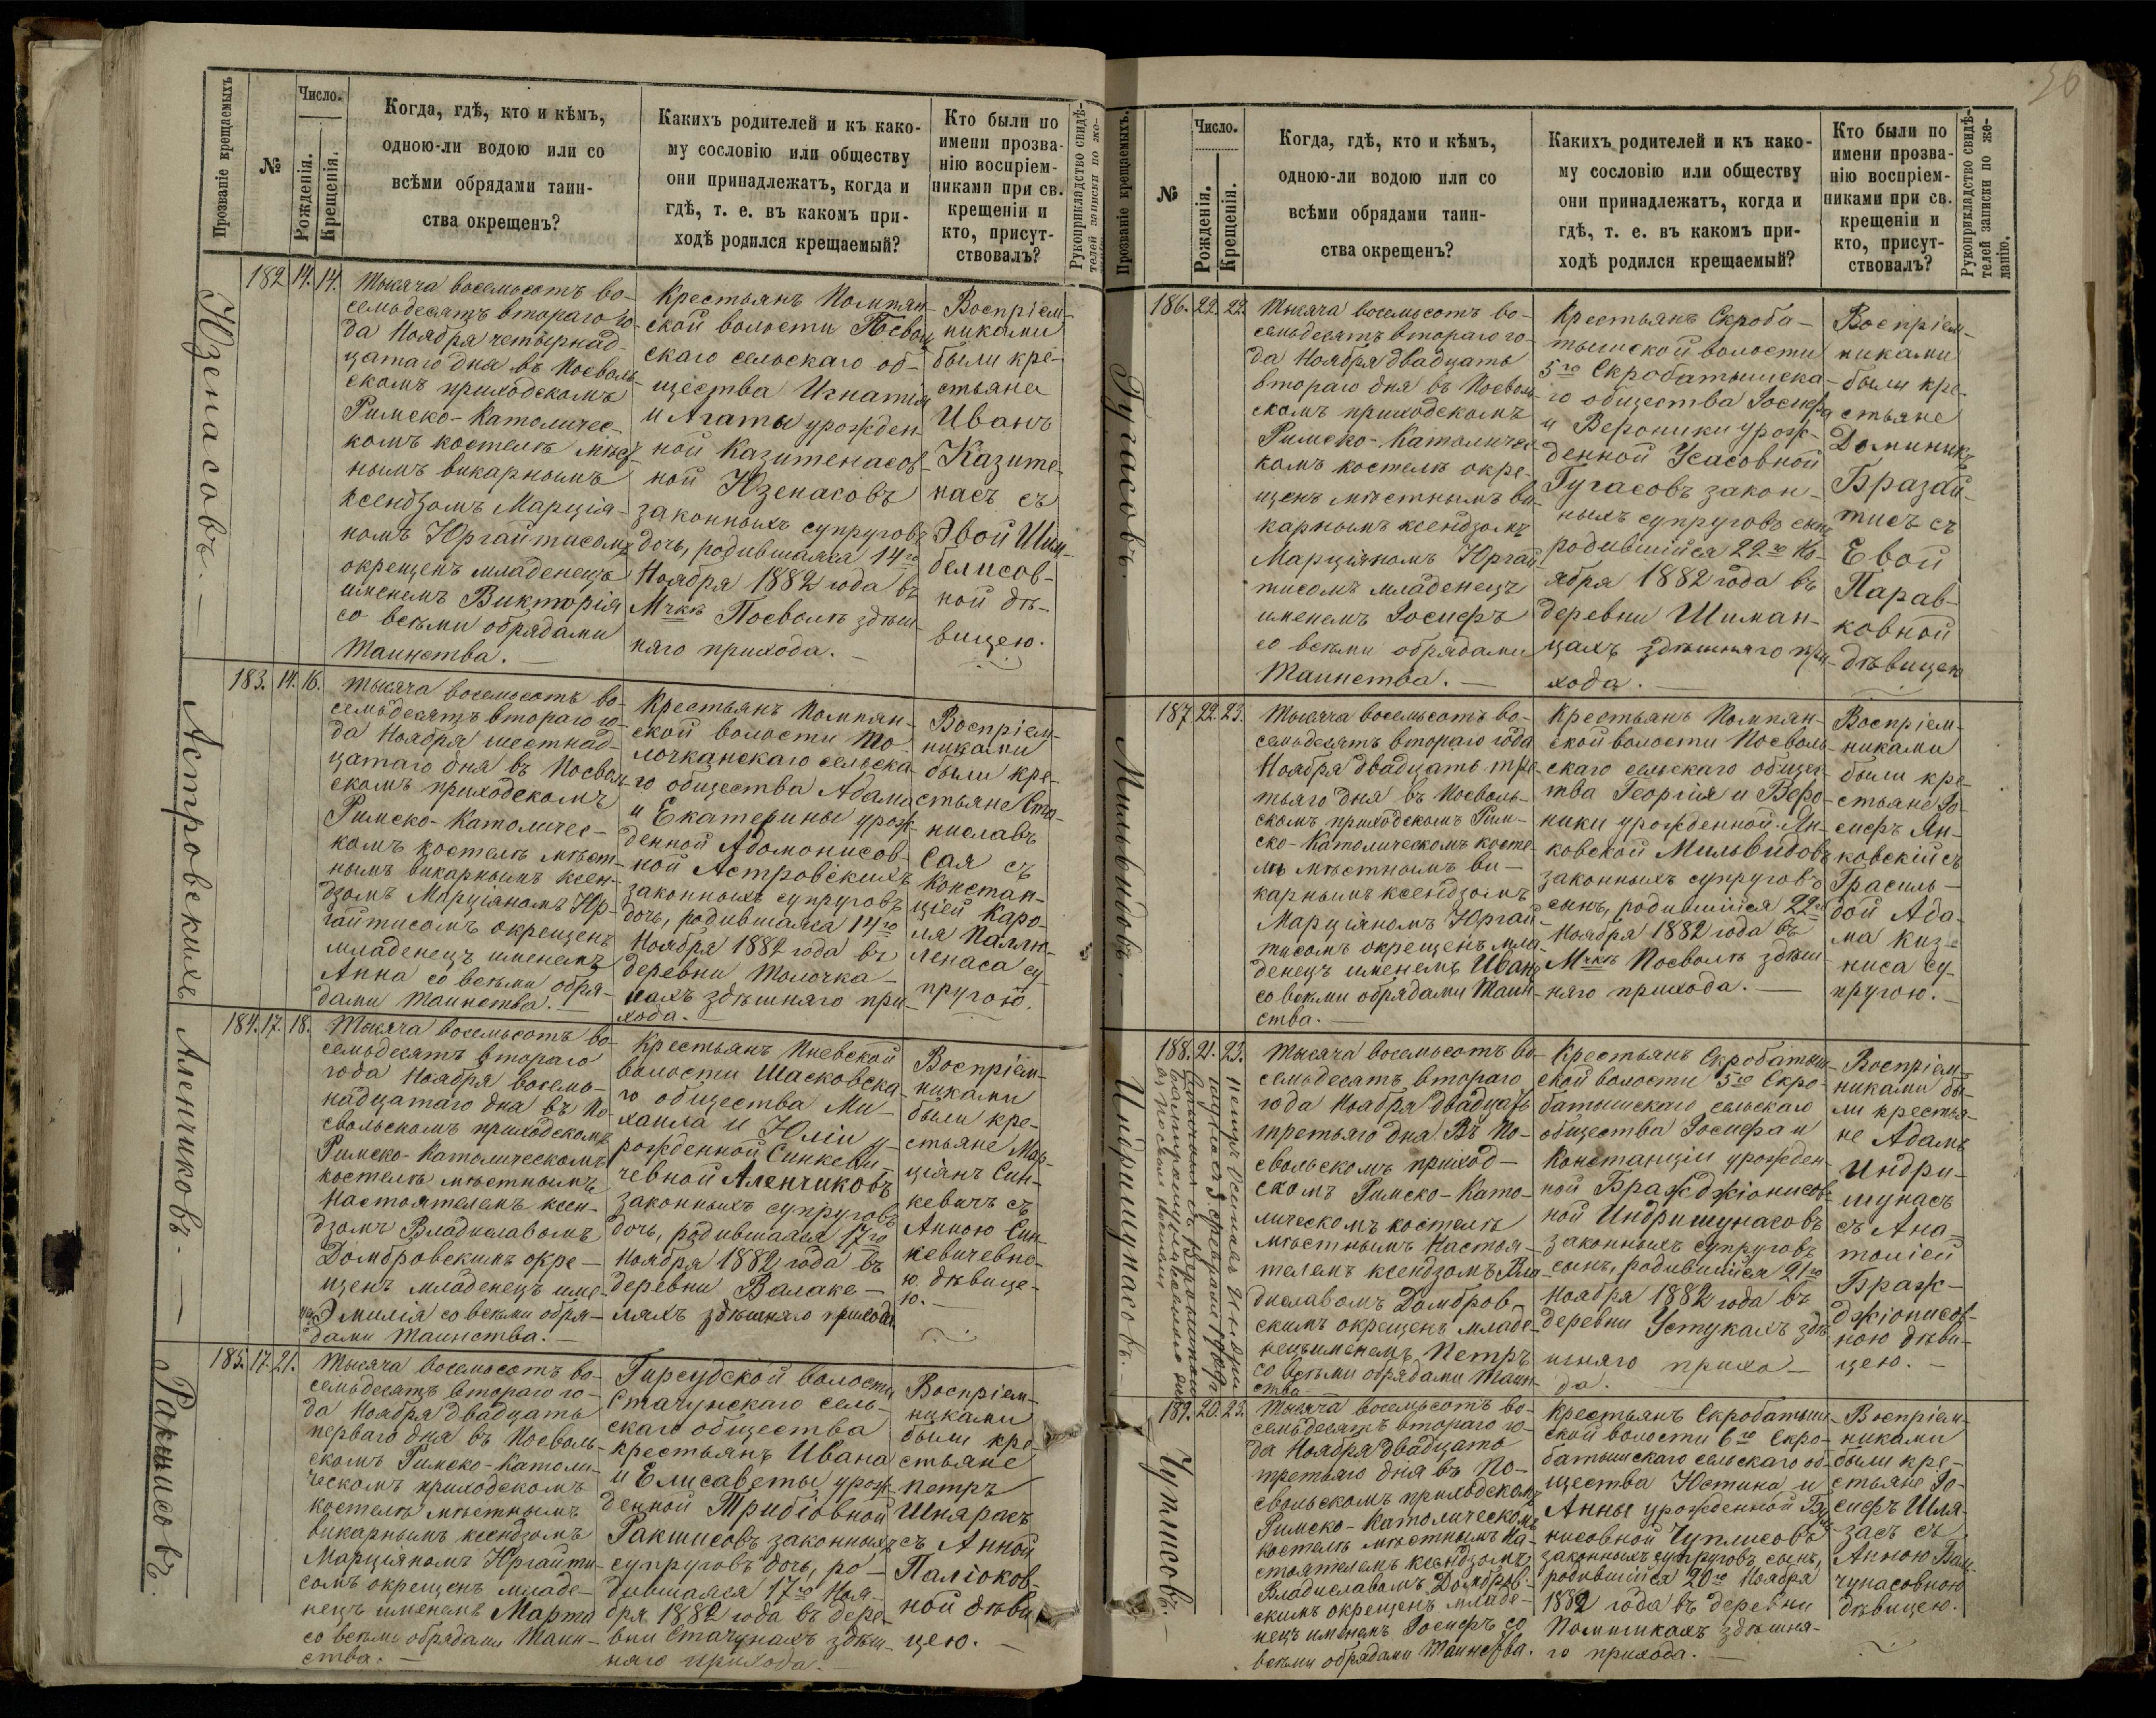 56
Прозваніе крещаемыхъ
№
Число.
Рожденія.
Крещенія.
Когда, гдѣ, кто и кѣмъ,
одною-ли водою или со
всѣми обрядами таин-
ства окрещенъ?
Какихъ родителей и къ како-
му сословію или обществу
они принадлежатъ, когда и
гдѣ, т. е. въ какомъ при-
ходѣ родился крещаемый?
Кто были по
имени прозва-
нію воспріем-
никами при св.
крещеніи и
кто, присут-
ствовалъ?
Рукоприкладство свидѣ-
телей записки по же-
Юзенасовъ.
182 14. 14.
Тысяча восемьсотъ во-
семьдесятъ втораго го-
да Ноября четырнад-
цатаго дня въ Посволь-
скомъ приходскомъ
Римско-Католичес-
комъ костелѣ мѣст-
нымъ викарнымъ
ксендзомъ Марція-
номъ Юргайтисомъ
окрещенъ младенецъ
именемъ Викторія
со всѣми обрядами
Таинства.
Крестьянъ Помпян-
ской волости Посволь-
скаго сельскаго об-
щества Игнатія
и Агаты урожден-
ной Казитенасов-
ной Юзенасовъ
законныхъ супруговъ
дочь, родившаяся 14го
Ноября 1882 года въ
Мчкѣ Посволѣ здѣш-
няго прихода.
Воспріем-
никами
были кре-
стьяне
Иванъ
Казите-
насъ съ
Эвой Шим-
белисов-
ной дѣ-
вицею.
Астровскихъ
183. 14. 16.
Тысяча восемьсотъ во-
семьдесятъ втораго го-
да Ноября шестнад-
цатаго дня въ Посволь-
скомъ приходскомъ
Римско-Католичес-
комъ костелѣ мѣст-
нымъ викарнымъ ксен-
дзомъ Марціяномъ Юр-
гайтисомъ окрещенъ
младенецъ именемъ
Анна со всѣми обря-
дами Таинства.
Крестьянъ Помпян-
ской волости То-
лочканскаго сельска-
го общества Адама
и Екатерины урож-
денной Адомонисов-
ной Астровскихъ
законныхъ супруговъ
дочь, родившаяся 14го
Ноября 1882 года въ
деревни Толочка-
нахъ здѣшняго при-
хода.
Воспріем-
никами
были кре-
стьяне Ста-
ниславъ
Сая съ
Констан-
ціей Каро-
ля Паллю-
ленаса су-
пругою.
Аленчиковъ.
184. 17. 18.
Тысяча восемьсотъ во-
семьдесятъ втораго
года Ноября восемь-
надцатаго дня въ По-
свольскомъ приходскомъ
Римско-Католическомъ
костелѣ мѣстнымъ
Настоятелемъ ксен-
дзомъ Владиславомъ
Домбровскимъ окре-
щенъ младенецъ име-
немъ Эмилія со всѣми обря-
дами Таинства.
Крестьянъ Пневской
волости Шасковска-
го общества Ми-
хаила и Юліи у-
рожденной Синкеви-
чевной Аленчиковъ
законныхъ супруговъ
дочь, родившаяся 17го
Ноября 1882 года въ
деревни Валаке-
ляхъ здѣшняго прихода.
Воспріем-
никами
были кре-
стьяне Мар-
ціянъ Син-
кевичъ съ
Анною Син-
кевичевно-
ю дѣвице-
ю.
Ракшисовъ.
185. 17. 21.
Тысяча восемьсотъ во-
семьдесятъ втораго го-
да Ноября двадцать
перваго дня въ Посволь-
скомъ Римско-Католи-
ческомъ приходскомъ
костелѣ мѣстнымъ
викарнымъ ксендзомъ
Марціяномъ Юргайти-
сомъ окрещенъ младе-
нецъ именемъ Марта
со всѣми обрядами Таин-
ства.
Гирсудской волости
Стачунскаго сель-
скаго общества
крестьянъ Ивана
и Елисаветы урож-
денной Трибіовной
Ракшисовъ законныхъ
супруговъ дочь, ро-
дившаяся 17го Ноя-
бря 1882 года въ дере-
вни Стачунахъ здѣш-
няго прихода.
Воспріем-
никами
были кре-
стьяне
Петръ
Шнярасъ
съ Анной
Паліоков-
ной дѣви-
цею.
Прозваніе крещаемыхъ.
№
Число.
Рожденія.
Крещенія.
Когда, гдѣ, кто и кѣмъ,
одною-ли водою или со
всѣми обрядами таин-
ства окрещенъ?
Какихъ родителей и къ како-
му сословію или обществу
они принадлежатъ, когда и
гдѣ, т. е. въ какомъ при-
ходѣ родился крещаемый?
Кто были по
имени прозва-
нію воспріем-
никами при св.
крещеніи и
кто, присут-
ствовалъ?
Рукоприкладство свидѣ-
телей записки по же-
ланію.
Гугасовъ.
186. 22. 22.
Тысяча восемьсотъ во-
семьдесятъ втораго го-
да Ноября двадцать
втораго дня въ Посволь-
скомъ приходскомъ
Римско-Католичес-
комъ костелѣ окре-
щенъ мѣстнымъ ви-
карнымъ ксендзомъ
Марціяномъ Юргай-
тисомъ младенецъ
именемъ Іосифъ
со всѣми обрядами
Таинства.
Крестьянъ Скроба-
тышской волости
5го Скробатышска-
го общества Іосифа
и Вероники урож-
денной Усасовной
Гугасовъ закон-
ныхъ супруговъ сынъ,
родившійся 22го Но-
ября 1882 года въ
деревни Шиман-
цахъ здѣшняго при-
хода.
Воспріем-
никами
были кре-
стьяне
Доминикъ
Бразай-
тисъ съ
Евой
Парав-
ковной
дѣвицею
Мильвидовъ
187 22. 23.
Тысяча восемьсотъ во-
семьдесятъ втораго года
Ноября двадцать тре-
тьяго дня въ Посволь-
скомъ приходскомъ Рим-
ско-Католическомъ косте-
лѣ мѣстнымъ ви-
карнымъ ксендзомъ
Марціяномъ Юргай-
тисомъ окрещенъ мла-
денецъ именемъ Иванъ
со всѣми обрядами Таин-
ства.
Крестьянъ Помпян-
ской волости Посволь-
скаго сельскаго общес-
тва Георгія и Веро-
ники урожденной Ян-
ковской Мильвидовъ
законныхъ супруговъ
сынъ, родившійся 22го
Ноября 1882 года въ
Мчкѣ Посволѣ здѣш-
няго прихода.
Воспріем-
никами
были кре-
стьяне Іо-
сифъ Ян-
ковскій съ
Грасиль-
дой Ада-
ма Киз-
ниса су-
пругою.
Индришунасовъ.
188. 21. 23.
Тысяча восемьсотъ во-
семьдесятъ втораго
года Ноября двадцать
третьяго дня въ По-
свольскомъ приход-
скомъ Римско-Като-
лическомъ костелѣ
мѣстнымъ Настоя-
телемъ ксендзомъ Вла-
диславомъ Домбров-
скимъ окрещенъ младе-
нецъ именемъ Петръ
со всѣми обрядами Таин-
ства
Крестьянъ Скробатыш-
ской волости 5го Скро-
батышскаго сельскаго
общества Іосифа и
Констанціи урожден-
ной Браждіонисов-
ной Индришунасовъ
законныхъ супруговъ
сынъ, родившійся 21го
Ноября 1882 года въ
деревни Устукахъ здѣ-
шняго прихо-
да.
Воспріем-
никами бы-
ли крестья-
не Адамъ
Индри-
шунасъ
съ Ана-
толіей
Браж-
джіонисов-
ною дѣви-
цею.
Чуплисовъ.
189. 20. 23.
Тысяча восемьсотъ во-
семьдесятъ втораго го-
да Ноября двадцать
третьяго дня въ По-
свольскомъ приходскомъ
Римско-Католическомъ
костелѣ мѣстнымъ На-
стоятелемъ ксендзомъ
Владиславомъ Домбров-
скимъ окрещенъ младе-
нецъ именемъ Іосифъ со
всѣми обрядами Таинства.
Крестьянъ Скробатыш-
ской волости 6го Скро-
батышскаго сельскаго об-
щества Юстина и
Анны урожденной
нисовной Чуплисовъ
законныхъ супруговъ сынъ,
родившійся 20го Ноября
1882 года въ деревни
Помишкахъ здѣшня-
го прихода.
Воспріем-
никами
были кре-
стьяне Іо-
сифъ Шля-
засъ съ
Анною
чунасовною
дѣвицею.